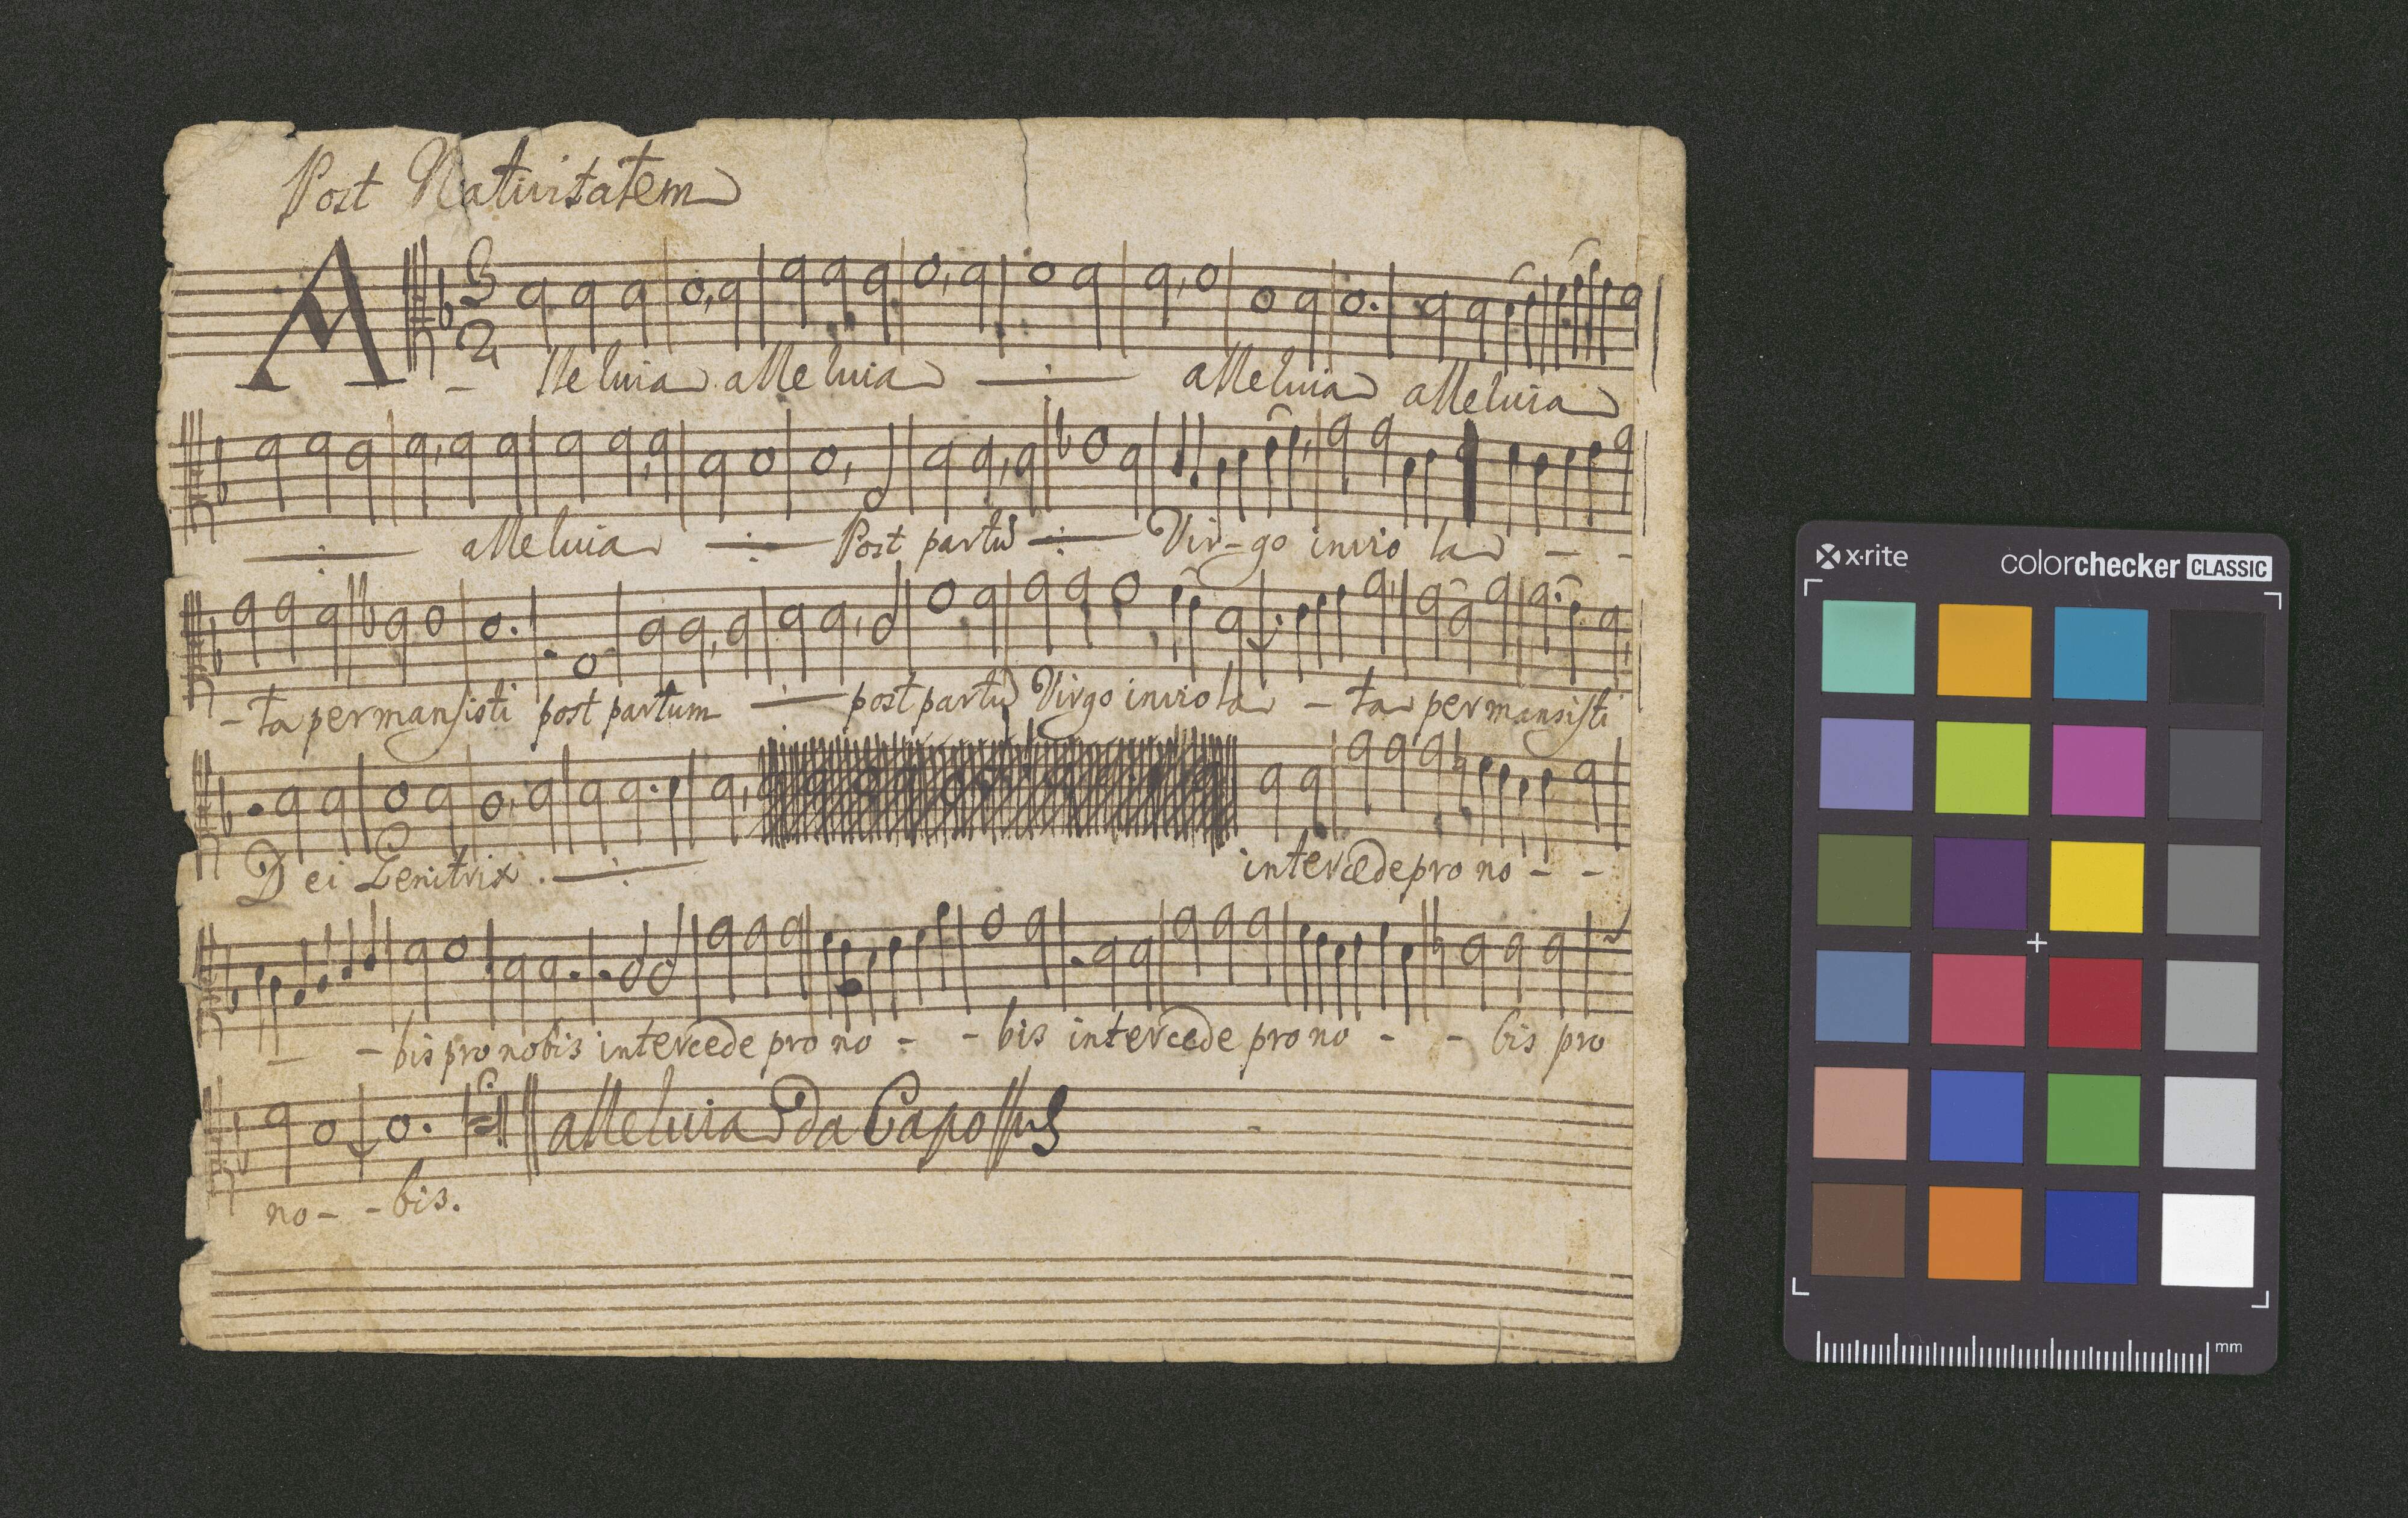 Post Nativitatem
3
2
A - lleluia alleluia alleluia alleluia
alleluia Post partū Vir-go invio la - -
-ta permansisti post partum post partū Virgo inviola - ta permansisti
Dei Genitrix. intercede pro no - -
- - bis pro nobis intercede pro no - - bis intercede pro no - - bis pro
alleluia da Capo
no - - bis.
x-rite
colorchecker CLASSIC
mm